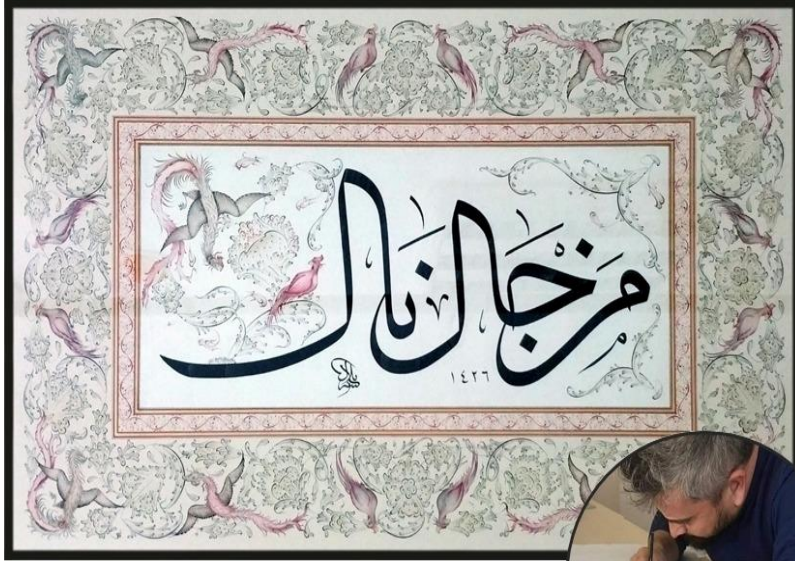 مَنْ جَالَ نَالَ
١٤٢٦